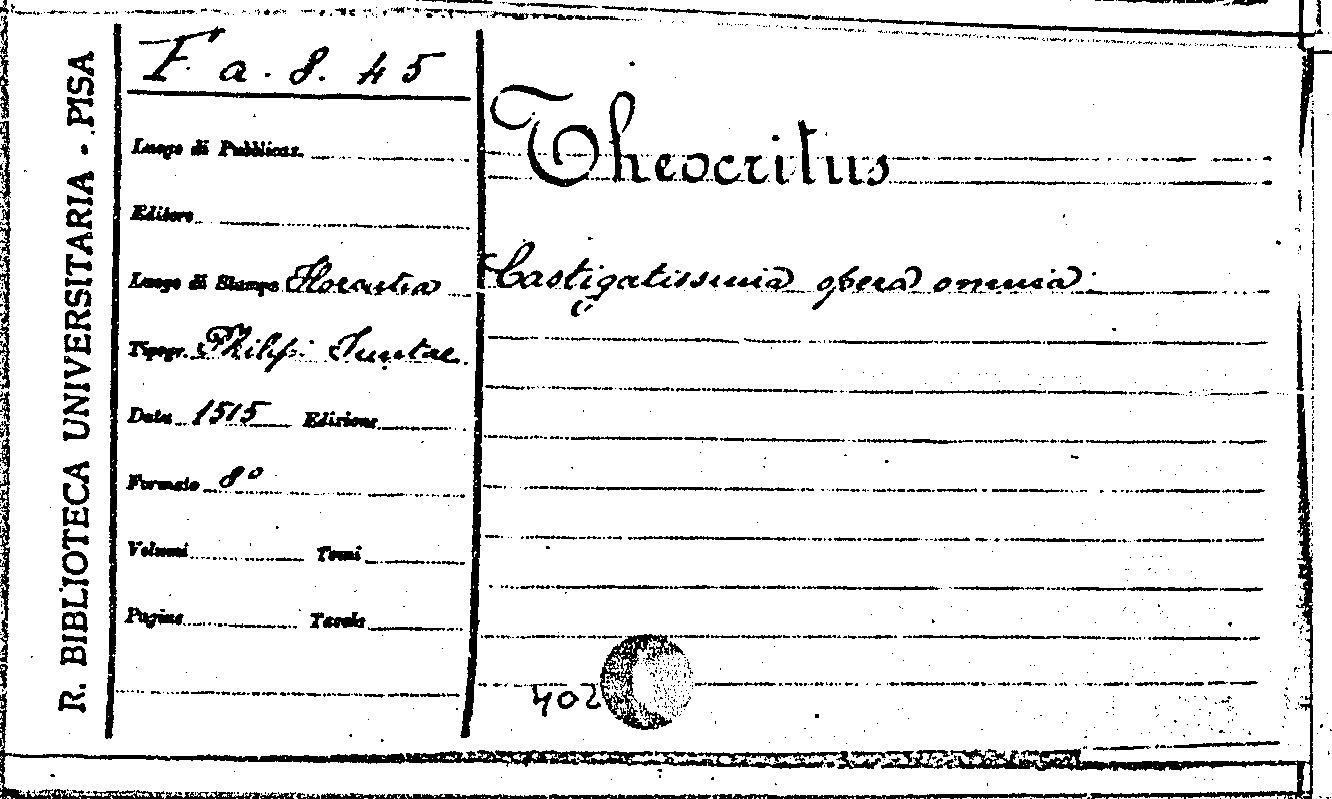 R. BIBLIOTECA UNIVERSITARIA - PISA
F. a. 8. 45
Luogo di Pubblicaz.
Editore
Luogo di Stampa Florentia
Tipogr. Philip. Juntae
Data 1515 Edizione
Formato 8°
Volumi Tomi
Pagine Tavole
Theocritus
Castigatissima opera omnia.
402